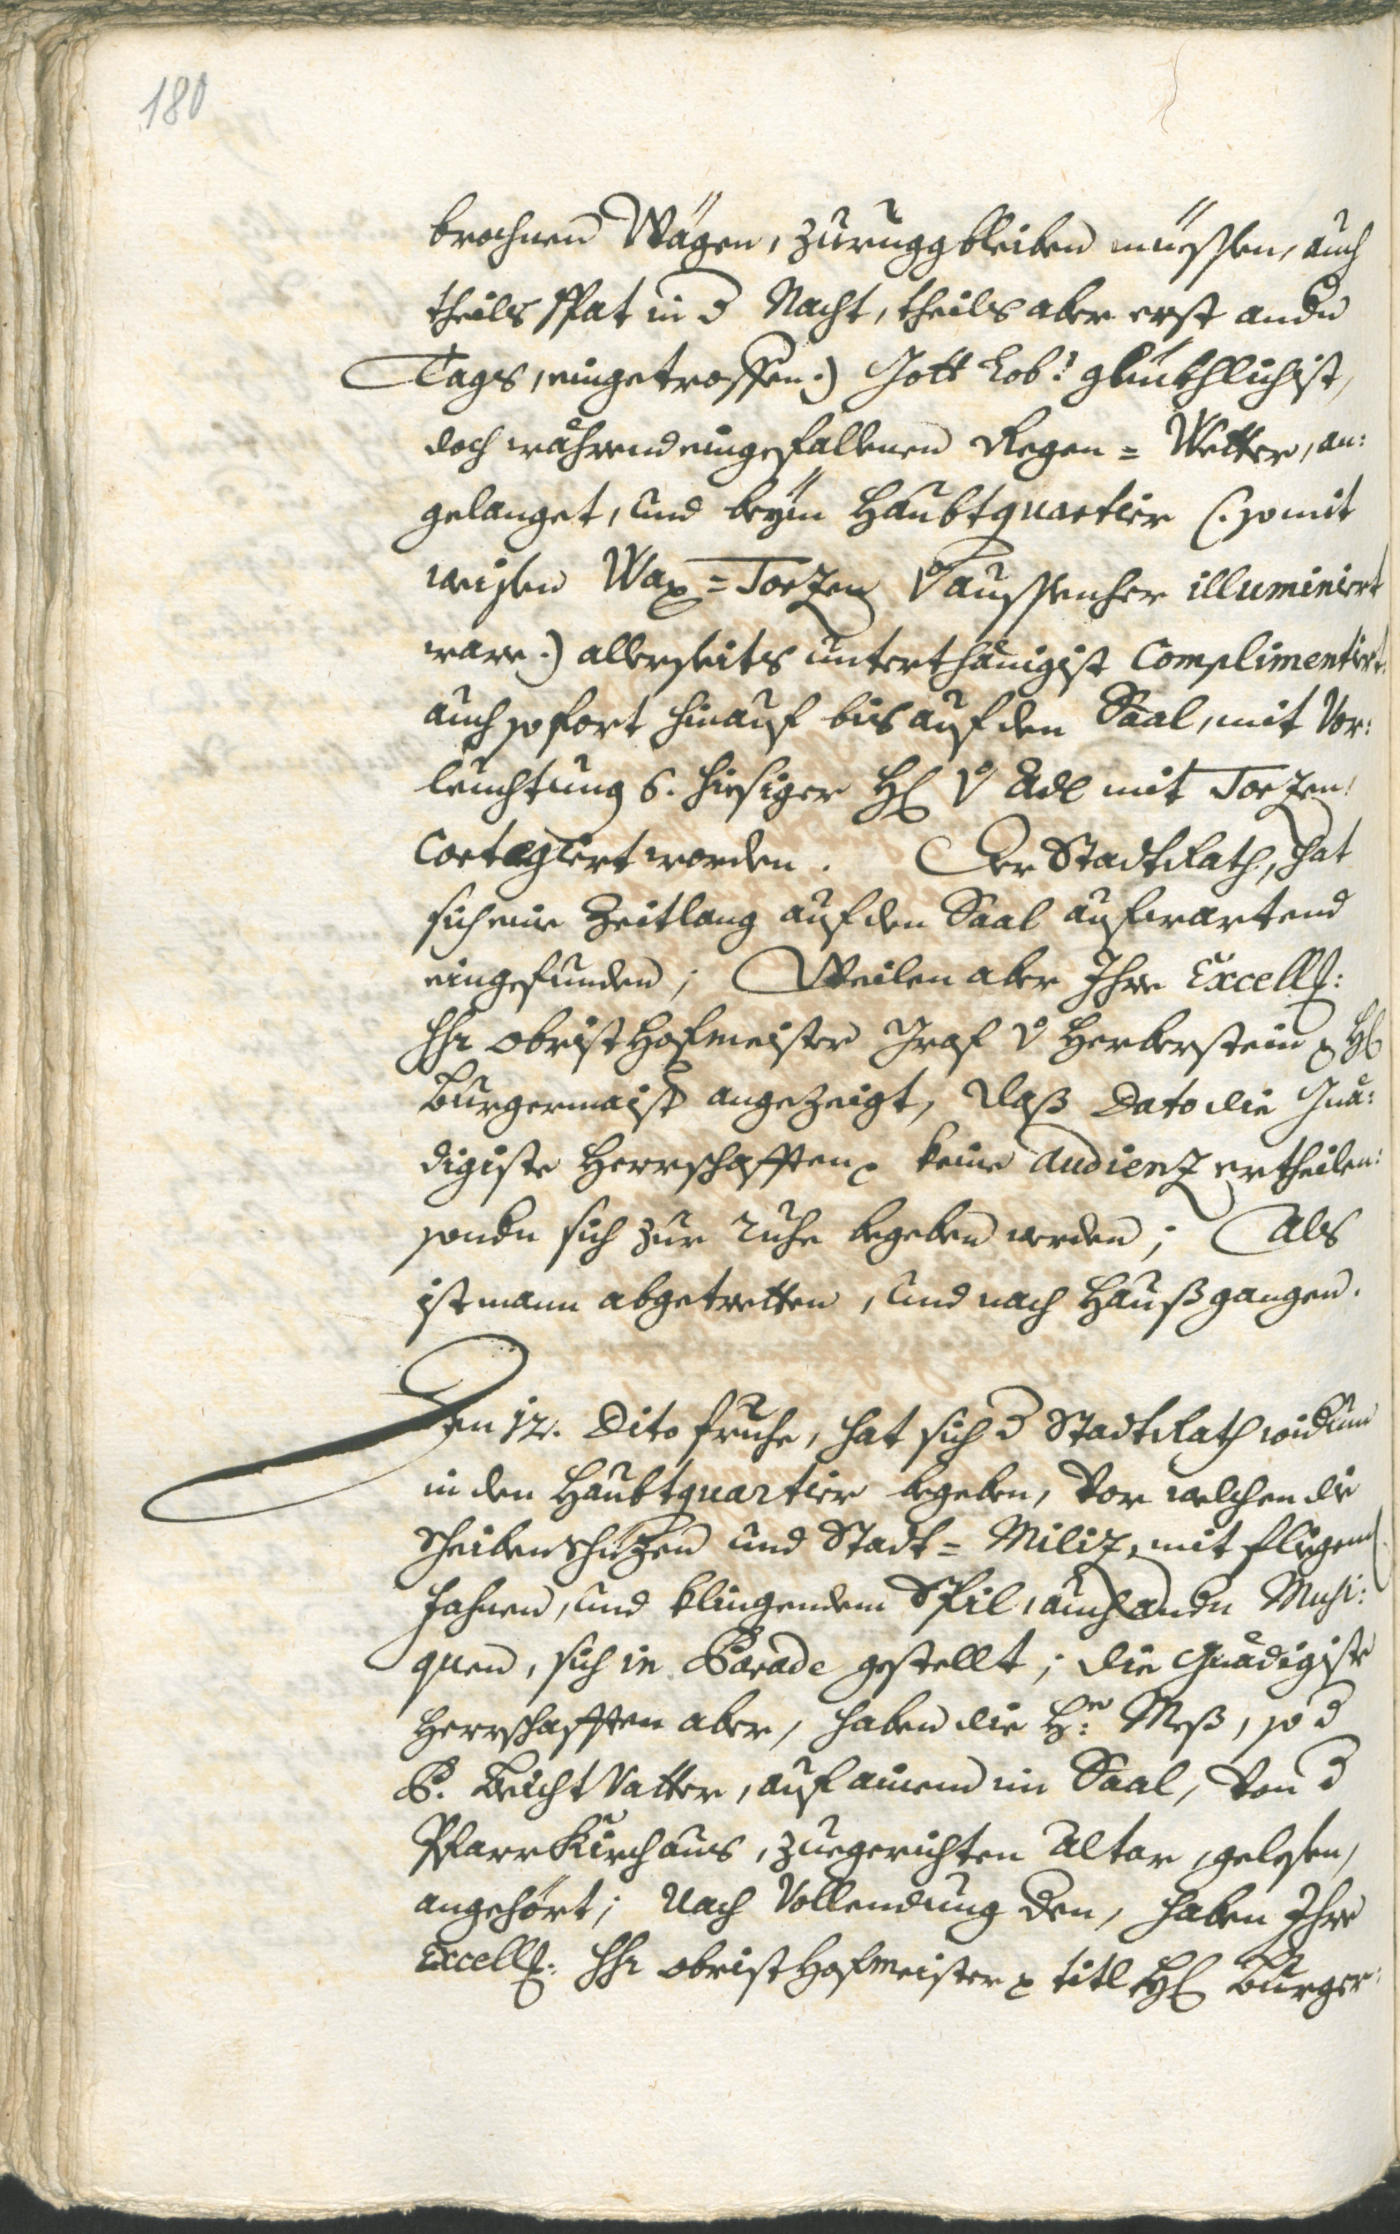 180
brochnen Wägen, zuruggbleiben müessen, auch
theils spat in d Nacht, theils aber erst andn
Tags, eingetroffen:) Gott Lob! glückhlichist,
doch während eingefallenen Regen= Wetter, an:
gelanget, und beym Haubtquartier (: so mit
weisen Wax=Torzen v aussenher illuminiert
ware:) allerseits unterthänigist Complimentirt.
auch sofort hinauf bis auf den Saal, mit Vor:
leuchtung 6. hiesiger H v Adl mit Torzen,
Cortegiert worden. Der StadtRath, hat
sich eine Zeitlang auf den Saal aufwartend
eingefunden; Weilen aber Ihre Excell:
Hr Obrist Hofmeister Graf v Herberstein H
Burgermaist angezeigt, daß Dato die Gnä:
digiste Herrschafften keine Audienz ertheilen:
sondn sich zur ruhe begeben werden; Als
ist mann abgetretten, und nach Hauß gangen.
Den 12. Dito fruhe, hat sich d StadtRath widum
in den Haubtquartier begeben, vor welchen die
Scheibenschüzen und Stadt=Miliz, mit fligend
Fahnen, und klingendem Spil, auch andn Musi:
quen, sich in Parade gestellt; die Gnädigiste
Herrschafften aber, haben die H: Meß, so d
P. Beicht Vatter, auf ainem im Saal, von d
Pfarr Kirch aus, zuegerichten Altar, gelesen,
angehört; Nach Vollendung den, haben Ihre
Excell: Hr Obrist Hofmeister titl H Burger: